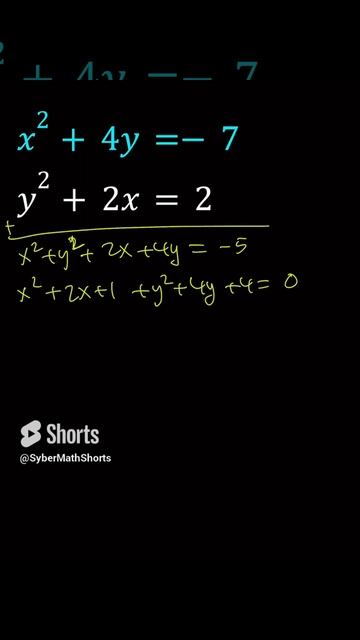 ² + 4y = − 7
x² + 4y = − 7
y² + 2x = 2
+
x² + y² + 2x + 4y = −5
x² + 2x + 1 + y² + 4y + 4 = 0
Shorts
@SyberMathShorts